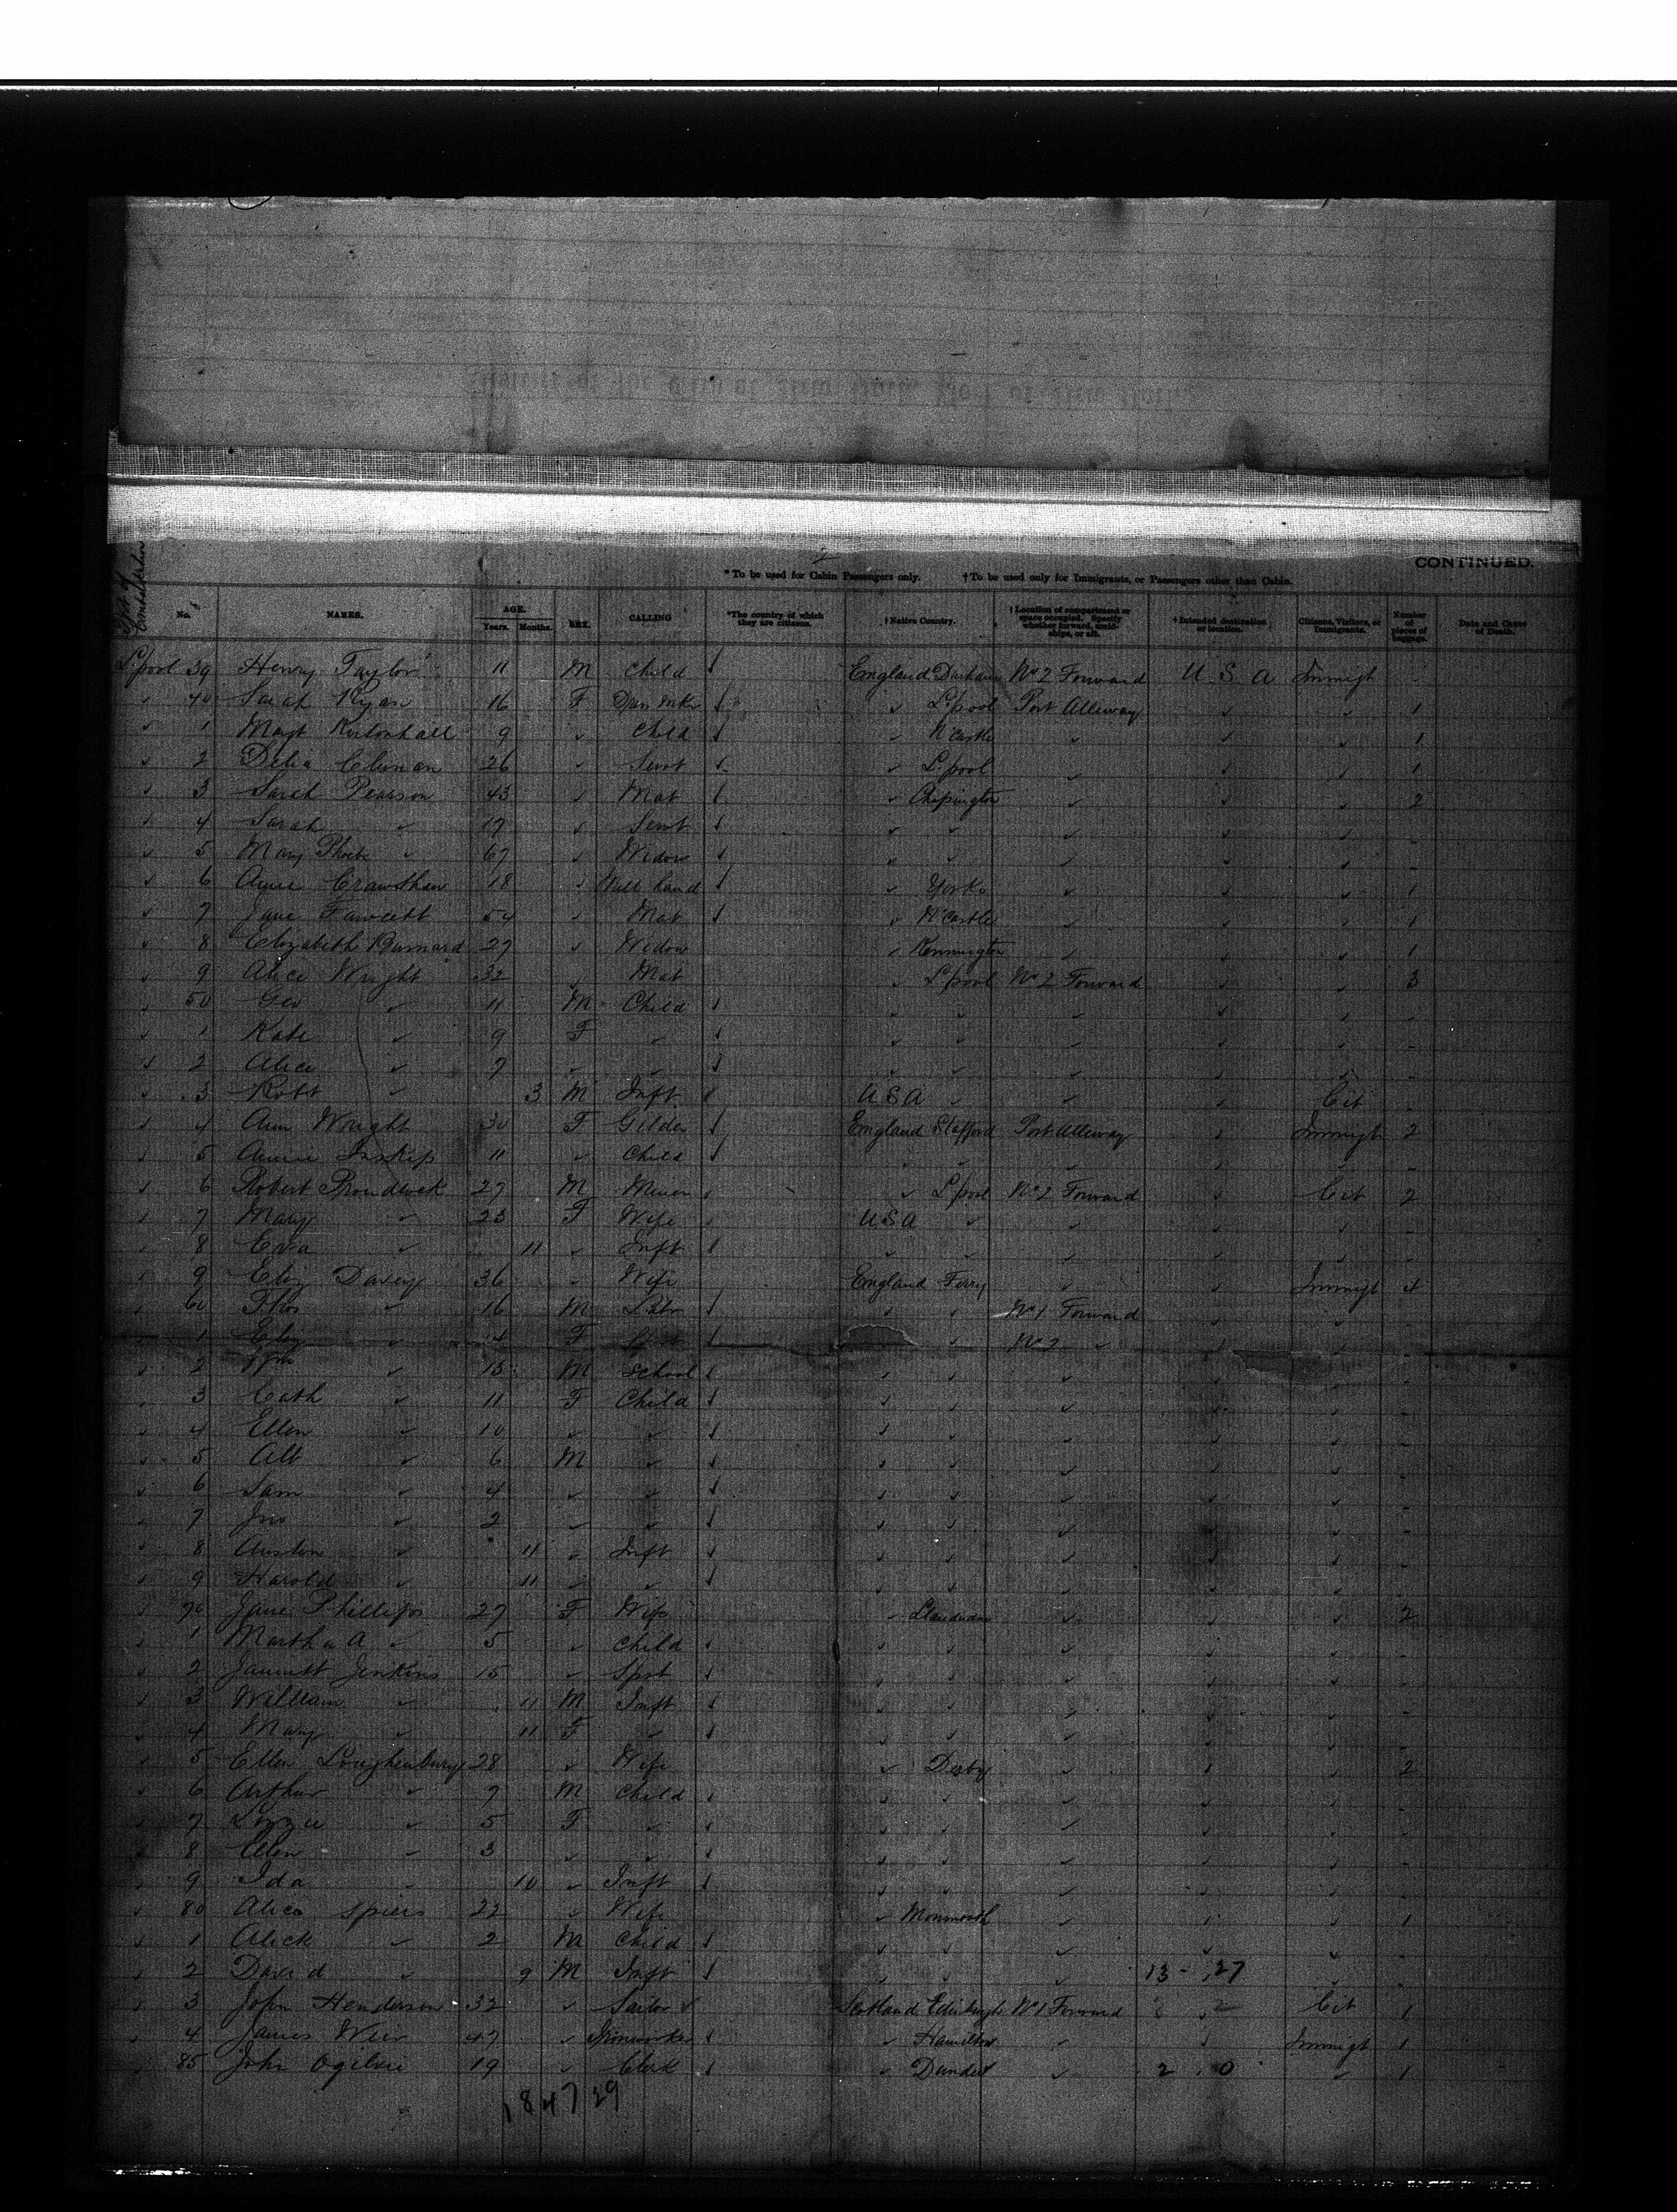 2
CONTINUED.
* To be used for Cabin Passengers only. † To be used only for Immigrants, or Passengers other than Cabin.
Port of Embarkation No. NAMES. AGE. Years. Months. SEX. CALLING *The country of which they are citizens. † Native Country. † Location of compartment or space occupied. Specify whether forward, amidships, or aft. † Intended destination or location. Citizens, Visitors, or Immigrants. Number of pieces of baggage. Date and Cause of Death.
L'pool 39 Henry Taylor 11 M Child England Durham No 2 Forward U.S.A Immigt -
" 40 Sarah Ryan 16 F " L'pool Port Alleway " " 1
" 1 Margt 9 " Child " N'Castle " " " 1
" 2 Delia Clunan 26 " Servt " L'pool " " " 1
" 3 Sarah Pearson 43 " Mat " " " " 2
" 4 Sarah " 17 " Servt " " " " " -
" 5 Mary Phoebe " 67 " Widow " " " " " -
" 6 Crawshaw 18 " Mill hand " Yorks " " " 1
" 7 Jane Fawcett 54 " Mat " N'Castle " " " 1
" 8 Elizabeth Barnard 27 " Widow " Kennington " " " 1
" 9 Alice Wright 32 " Mat " L'pool No 2 Forward " " 3
" 50 Geo " 11 M Child " " " " " -
" 1 Kate " 9 F " " " " " " -
" 2 Alice " 7 " " " " " " " -
" 3 Robt " 3 M Inft USA " " " Cit -
" 4 Ann Wright 30 F Gilder England Stafford Port Alleway " Immigt 2
" 5 Annie Inskip 11 " Child " " " " " -
" 6 Robert Proudlock 27 M Miner " L'pool No 2 Forward " Cit 2
" 7 Mary " 23 F Wife USA " " " " -
" 8 Eva " 11 " Inft " " " " " -
" 9 Eliz Davey 36 " Wife England Ferry " " Immigt 4
" 60 Thos " 16 M Labr " " No 1 Forward " " -
" 1 Eliz " F " " No 2 " " " -
" 2 Wm " 13 M School " " " " " -
" 3 Cath " 11 F Child " " " " " -
" 4 Ellen " 10 " " " " " " " -
" 5 Alb " 6 M " " " " " " -
" 6 Sam " 4 " " " " " " " -
" 7 Jno " 2 " " " " " " " -
" 8 Austin " 11 " Inft " " " " " -
" 9 Harold " 11 " " " " " " " -
" 70 Jane Phillips 27 F Wife " " " " 2
" 1 Martha A " 5 " Child " " " " " -
" 2 Jenkins 15 " Spst " " " " " -
" 3 William " 11 M Inft " " " " " -
" 4 Mary " 11 F " " " " " " -
" 5 Ellen Loughenbury 28 " Wife " Derby " " " 2
" 6 Arthur " 7 M Child " " " " " -
" 7 Lizzie " 5 F " " " " " " -
" 8 Ellen " 3 " " " " " " " -
" 9 Ida " 10 " Inft " " " " " -
" 80 Alice Spiers 22 " Wife " Monmouth " " " 1
" 1 Alick " 2 M Child " " " " " -
" 2 David " 9 M Inft " " " 13 - 27 " -
" 3 John Henderson 32 " Sailor Scotland Edinburgh No 1 Forward 2 Cit 1
" 4 James Weir 47 " Ironworker " Hamilton " " Immigt 1
" 85 John Ogilvie 19 " Clerk " Dundee " 2 0 " 1
18 47 29